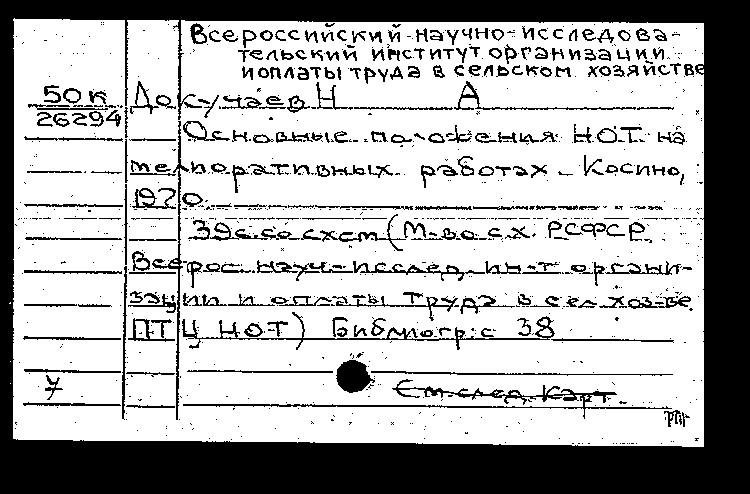 Всероссийский научно-исследова-
тельский институт организации
и оплаты труда в сельском хозяйстве
50к
26294
Докучаев Н А
Основные положения НОТ на
мелиоративных работах - Косино,
1970
39с. со схем (М-во с.х. РСФСР.
Всерос. науч-исслед. ин-т органи-
зации и оплаты труда в сел. хоз-ве.
ПТЦ НОТ) Библиогр: с 38
У
См. след. карт.